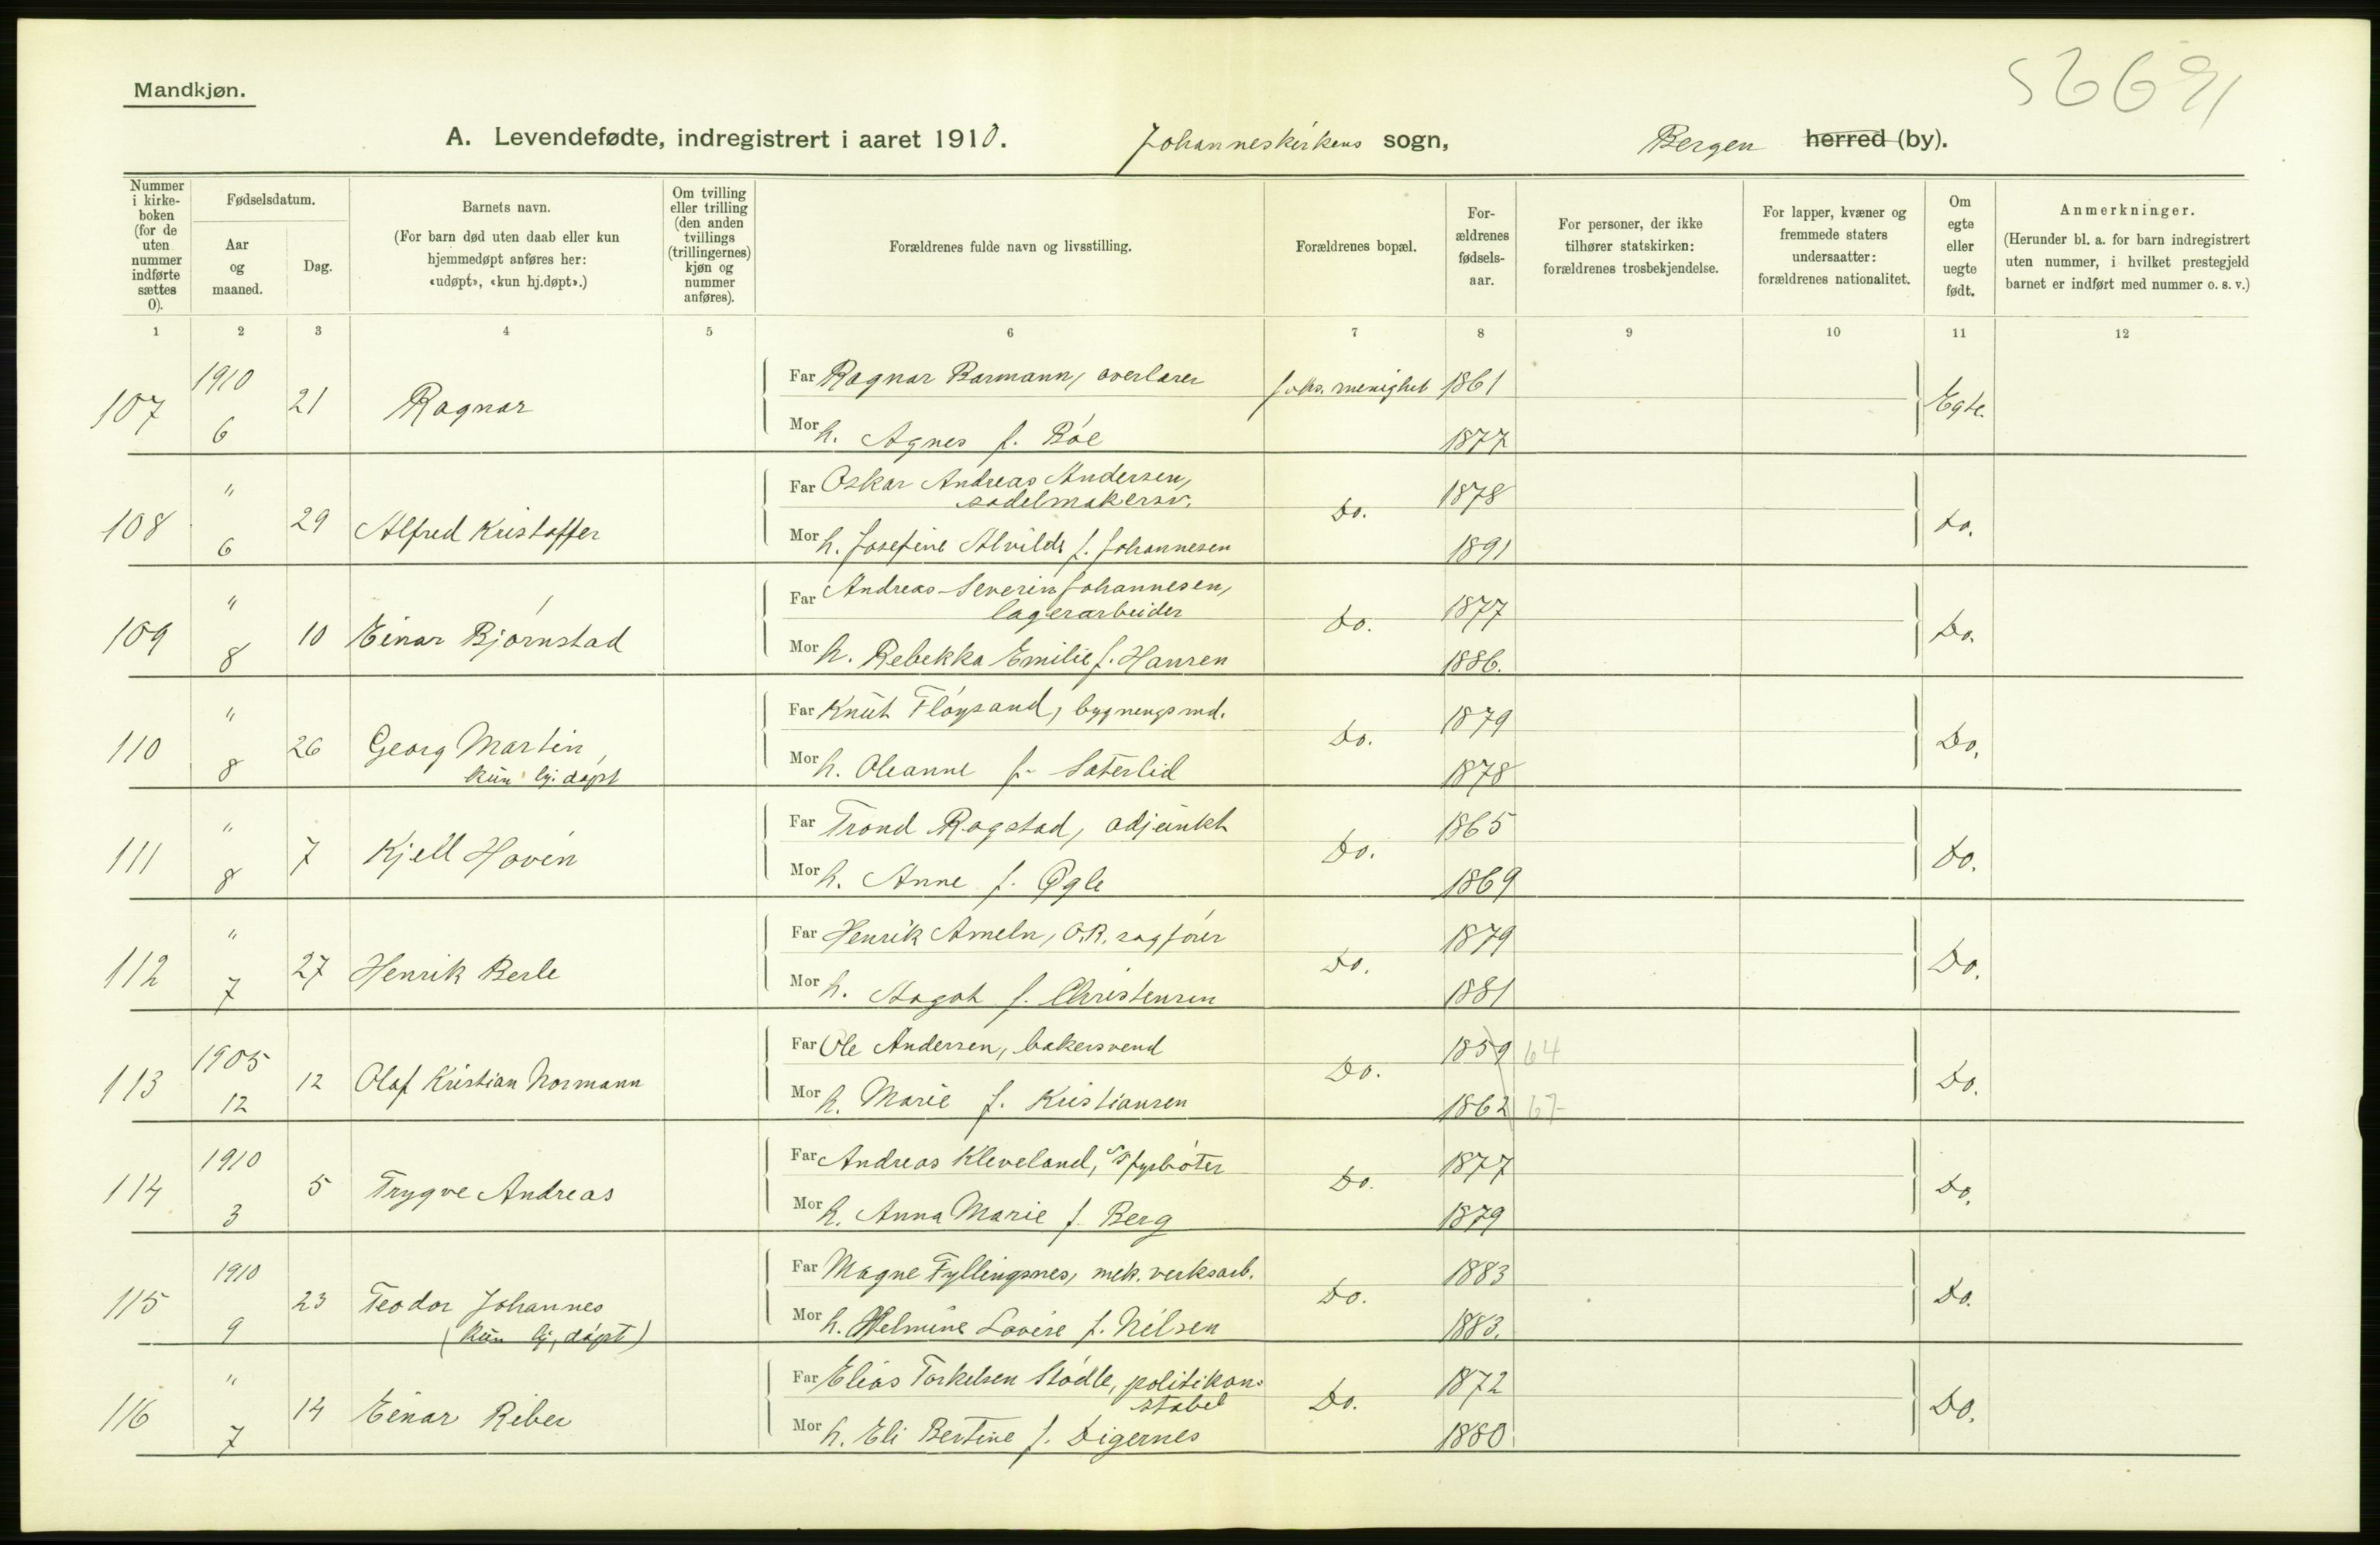 56691
Mandkjøn.
A. Levendefødte, indregistrert i aaret 1910. Johanneskirkens sogn, Bergen herred (by).
Nummer i kirke-boken (for de uten nummer indførte sættes 0).
Fødselsdatum.
Aar og maaned.
Dag.
Barnets navn.
(For barn død uten daab eller kun hjemmedøpt anføres her: «udøpt», «kun hj.døpt».)
Om tvilling eller trilling (den anden tvillings (trillingernes) kjøn og nummer anføres).
Forældrenes fulde navn og livsstilling.
Forældrenes bopæl.
For-ældrenes fødsels-aar.
For personer, der ikke tilhører statskirken: forældrenes trosbekjendelse.
For lapper, kvæner og fremmede staters undersaatter: forældrenes nationalitet.
Om egte eller uegte født.
Anmerkninger.
(Herunder bl. a. for barn indregistrert uten nummer, i hvilket prestegjeld barnet er indført med nummer o. s. v.)
1 2 3 4 5 6 7 8 9 10 11 12
107 1910 6 21 Ragnar
Far Ragnar Barmann, overlærer Johs. menighet 1861 Egte.
Mor h. Agnes f. Bøe 1877
108 " 6 29 Alfred Kristoffer
Far Oskar Andreas Andersen, sadelmakersv. Do. 1878 Do.
Mor h. Josefine Alvilde f. Johannesen 1891
109 " 8 10 Einar Bjørnstad
Far Andreas Severin Johannesen, lagerarbeider Do. 1877 Do.
Mor h. Rebekka Emilie f. Hansen 1886.
110 " 8 26 Georg Martin, kun hj. døpt
Far Knut Fløysand, bygningsmd. Do. 1879 Do.
Mor h. Oleanne f. Sæterlid 1878
111 " 8 7 Kjell Hovin
Far Trond Rogstad, adjunkt Do. 1865 Do.
Mor h. Anne f. Øgle 1869
112 " 7 27 Henrik Berle
Far Henrik Ameln, O.R. sagfører Do. 1879 Do.
Mor h. Aagot f. Christensen 1881
113 1905 12 12 Olaf Kristian Normann
Far Ole Andersen, bakersvend Do. 1859 64 Do.
Mor h. Marie f. Kristiansen 1862 67
114 1910 3 5 Trygve Andreas
Far Andreas Kleveland, s/s fyrbøter Do. 1877 Do.
Mor h. Anna Marie f. Berg 1879
115 1910 9 23 Teodor Johannes (kun hj. døpt)
Far Magne Fyllingsnes, mek. verksarb. Do. 1883 Do.
Mor h. Helmine Lovise f. Nilsen 1883.
116 " 7 14 Einar Riber
Far Elias Torkelsen Stødle, politikonstabel Do. 1872 Do.
Mor h. Eli Bertine f. Digernes 1880